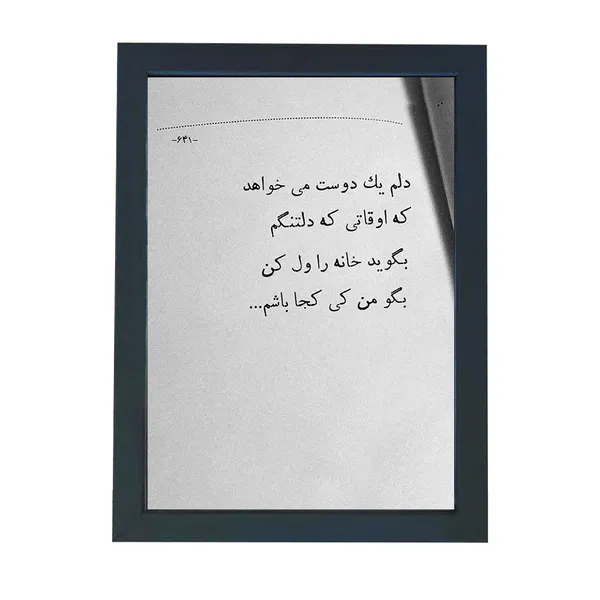 -۶۴۱-
دلم یك دوست می خواهد
که اوقاتی که دلتنگم
بگوید خانه را ول کن
بگو من کی کجا باشم...